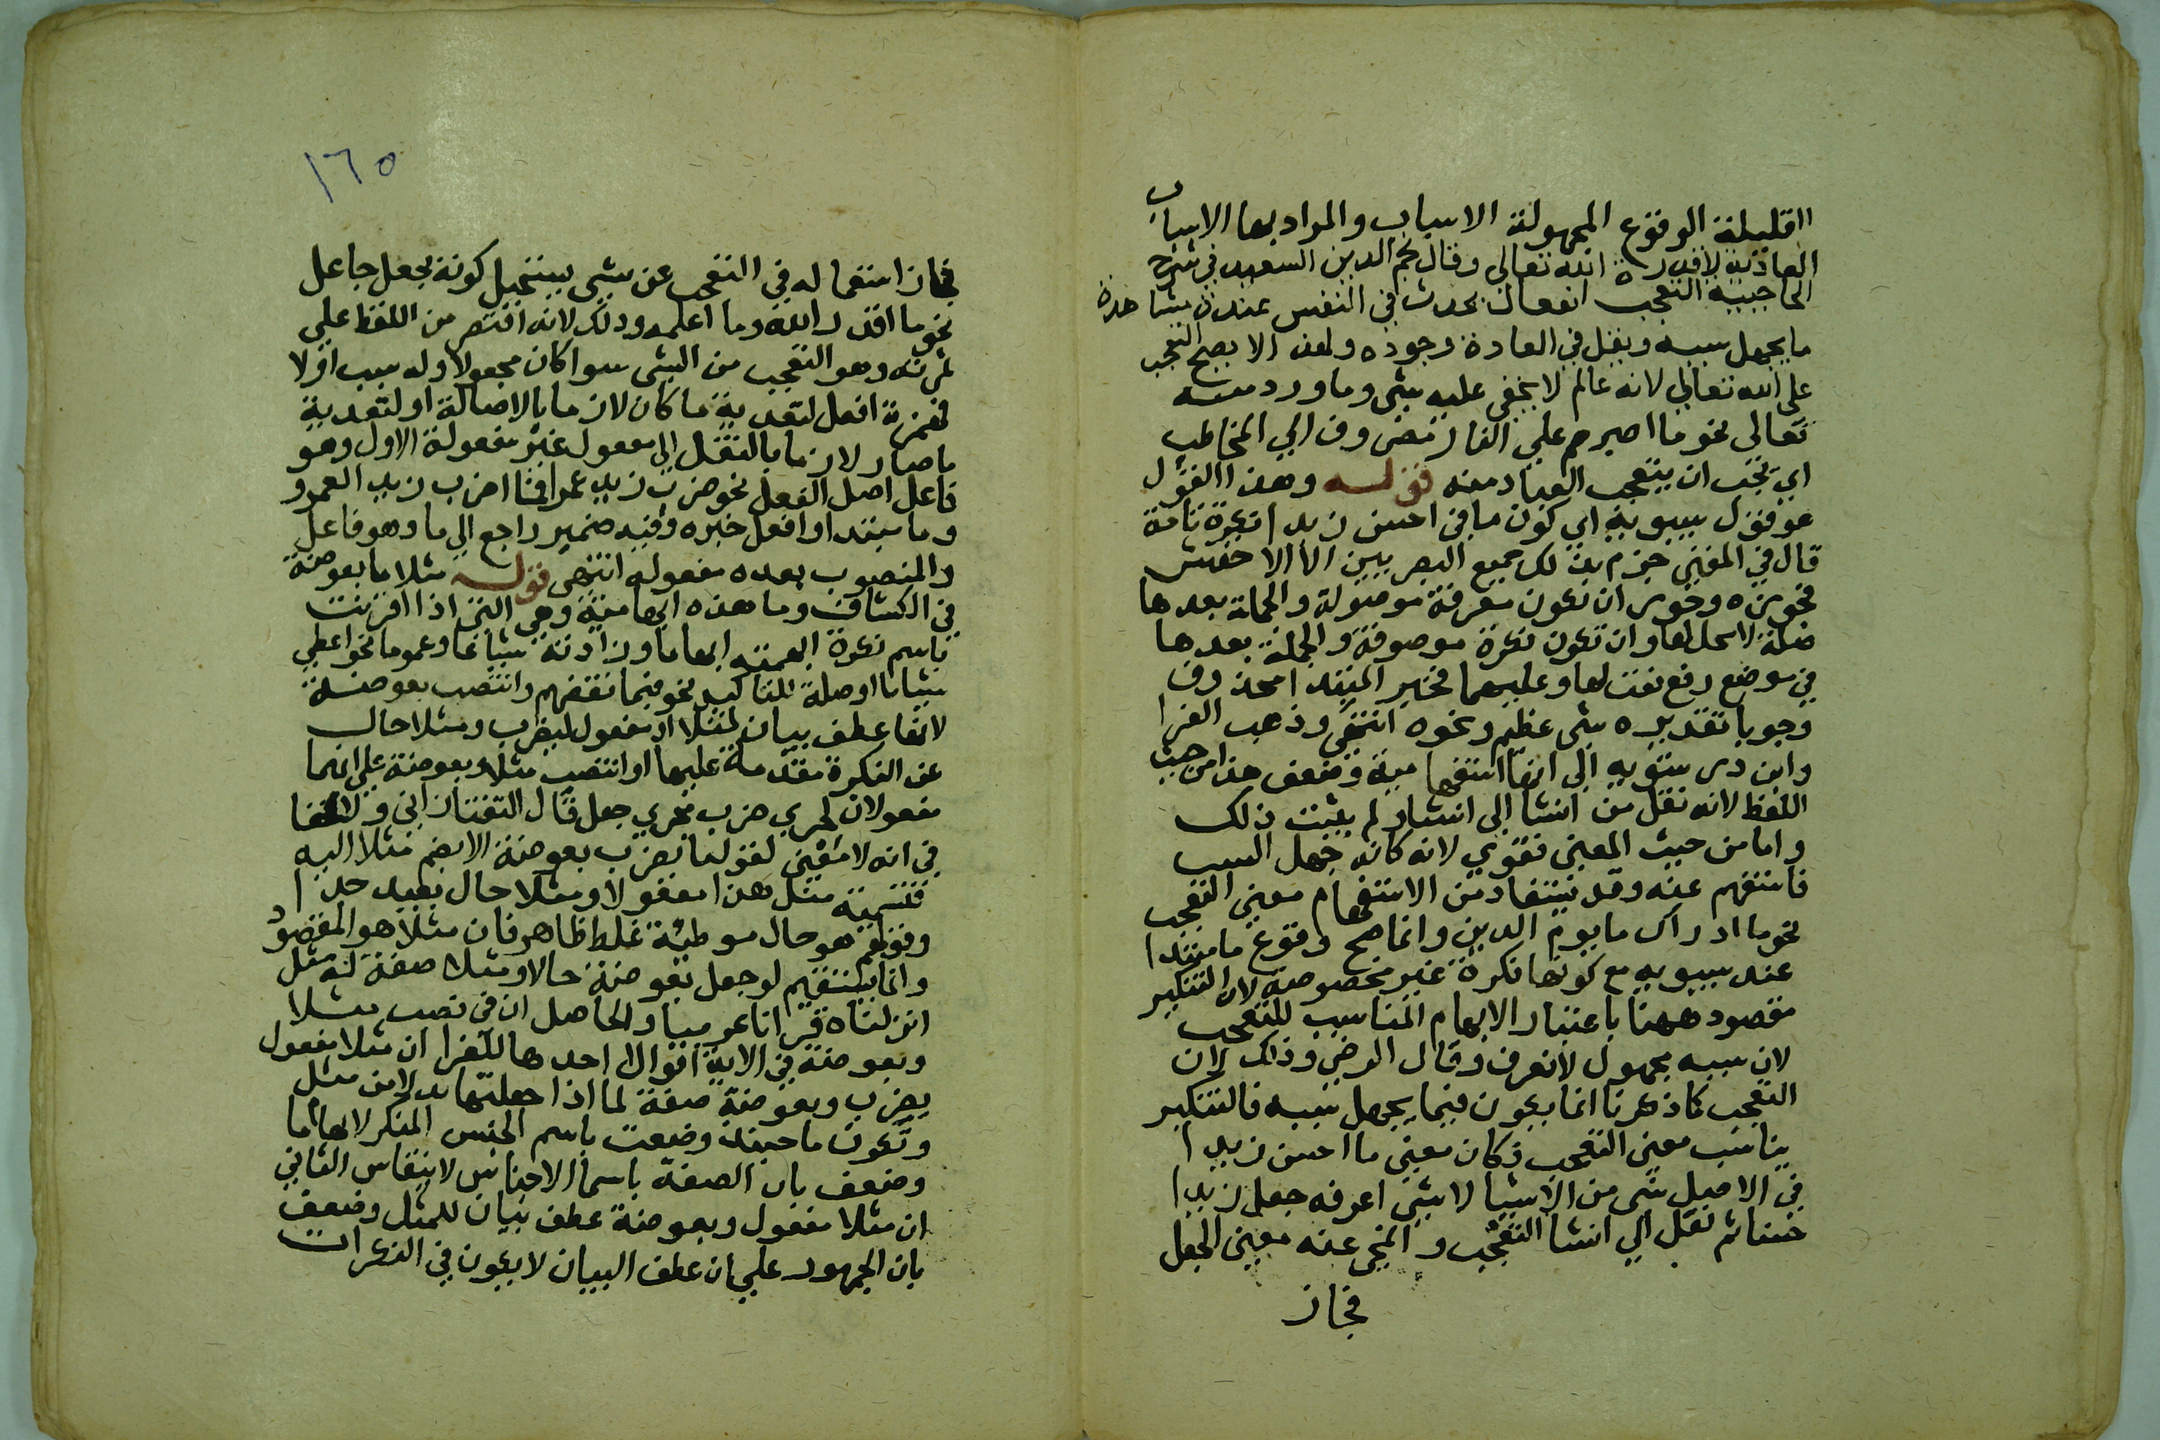 القليلة الوقوع المجهولة الاسباب والمراد بها الاسباب
العادية لا قدرة الله تعالى وقال نجم الدين السعيد في شرح
الحاجبية التعجب انفعال يحدث في النفس عند مشاهدة
ما يجهل سببه ويقل في العادة وجوده ولهذا لا يصح التعجب
على الله تعالى لانه عالم لا يخفى عليه شى وما ورد منه
تعالى نحو ما اصبرهم على النار مصروف الى المخاطب
اي يجب ان يتعجب العباد منه قوله وهذا القول
هو قول سيبويه اي كون ما في احسن زيدا نكرة تامة
قال في المغني جزم بذلك جميع البصريين الا الاخفش
فجوزه وجوز ان تكون معرفة موصولة والجملة بعدها
صلة لا محل لها وان تكون نكرة موصوفة والجملة بعدها
في موضع رفع نعت لها وعليهما فخبر المبتدا محذوف
وجوبا تقديره شى عظيم ونحوه انتهى وذهب الفرا
وابن درستويه الى انها استفهامية وضعف هذا من حيث
اللفظ لانه نقل من انشا الى انشا ولم يثبت ذلك
واما من حيث المعنى فقوي لانه كانه جهل السبب
فاستفهم عنه وقد يستفاد من الاستفهام معنى التعجب
نحو ما ادراك ما يوم الدين وانما صح وقوع ما مبتدا
عند سيبويه مع كونها نكرة غير مخصوصة لان التنكير
مقصود ههنا باعتبار الابهام المناسب للتعجب
لان سببه مجهول لا نعرف وقال الرضي وذلك لان
التعجب كما ذكرنا انما يكون فيما يجهل سببه فالتنكير
يناسب معنى التعجب فكان معنى ما احسن زيدا
في الاصل شى من الاشيا لا شى اعرفه جعل زيدا
حسنا ثم نقل الى انشا التعجب و انمحى عنه معنى الجعل
فجاز
١٦٥
فجاز استعماله في التعجب عن شى يستحيل كونه بجعل جاعل
نحو ما اقدر الله وما اعلمه وذلك لانه اقتصر من اللفظ على
ثمرته وهو التعجب من الشى سوا كان مجعولا وله سبب او لا
فهمزة افعل لتعدية ما كان لازما بالاصالة او لتعدية
ما صار لازما بالنقل الى مفعول غير مفعوله الاول وهو
فاعل اصل الفعل نحو ضرب زيد عمرا فما اضرب زيدا لعمرو
وما مبتدا وافعل خبره وفيه ضمير راجع الى ما وهو فاعل
والمنصوب بعده مفعوله انتهى قوله مثلا ما بعوضة
في الكشاف وما هذه ابهامية وهي التي اذا اقترنت
باسم نكرة ابهمته ابهاما وزادته شياعا وعموما نحو اعطني
شيا ما او صلة للتاكيد نحو فبما نقضهم وانتصب بعوضة
لانها عطف بيان لمثلا او مفعول ليضرب ومثلا حال
عن النكرة مقدمة عليها او انتصب مثلا وبعوضة على انهما
مفعولان لجري ضرب مجرى جعل قال التفتازاني ولا خفا
في انه لا معنى لقولنا يضرب بعوضة الا بضم مثلا اليه
فتسمية مثل هذا مفعولا ومثلا حال بعيد جدا
وقولهم هو حال موطئة غلط ظاهر فان مثلا هو المقصود
وانما يستقيم لو جعل بعوضة حالا ومثلا صفة له مثل
انزلناه قرانا عربيا والحاصل ان في نصب مثلا
وبعوضة في الاية اقوالا احدها للفرا ان مثلا مفعول
يضرب وبعوضة صفة لما اذا جعلتها بدلا من مثل
وتكون ما حينئذ وصفت باسم الجنس المنكر لابهاما
وضعف بان الصفة باسما الاجناس لا ينقاس الثاني
ان مثلا مفعول وبعوضة عطف بيان للمثل وضعف
بان الجمهور على ان عطف البيان لا يكون في النكرات